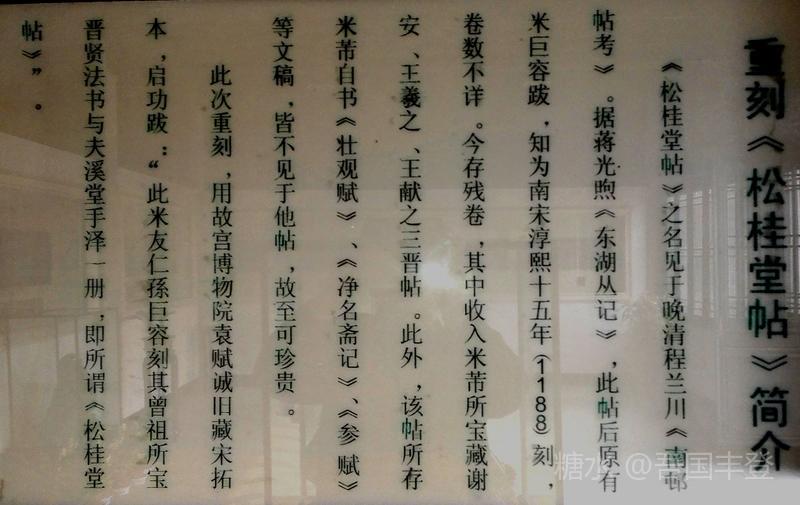 重刻《松桂堂帖》简介
《松桂堂帖》之名见于晚清程兰川《南邨
帖考》。据蒋光煦《东湖丛记》，此帖后原有
米巨容跋，知为南宋淳熙十五年(1188)刻，
卷数不详。今存残卷，其中收入米芾所宝藏谢
安、王羲之、王献之三晋帖。此外，该帖所存
米芾自书《壮观赋》、《净名斋记》、《参赋》
等文稿，皆不见于他帖，故至可珍贵。
此次重刻，用故宫博物院袁赋诚旧藏宋拓
本，启功跋：“此米友仁孫巨容刻其曾祖所宝
晋贤法书与夫溪堂手泽一册，即所谓《松桂堂
帖》”。
糖水@吾国丰登